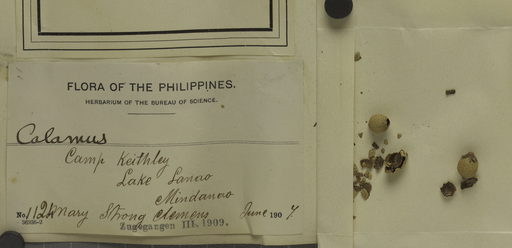 FLORA OF THE PHILIPPINES.
HERBARIUM OF THE BUREAU OF SCIENCE.
Calamus
Camp Keithley
Lake Lanao
Mindanao
No. Mary Strong Clemens June 1907
Zugegangen III. 1909.